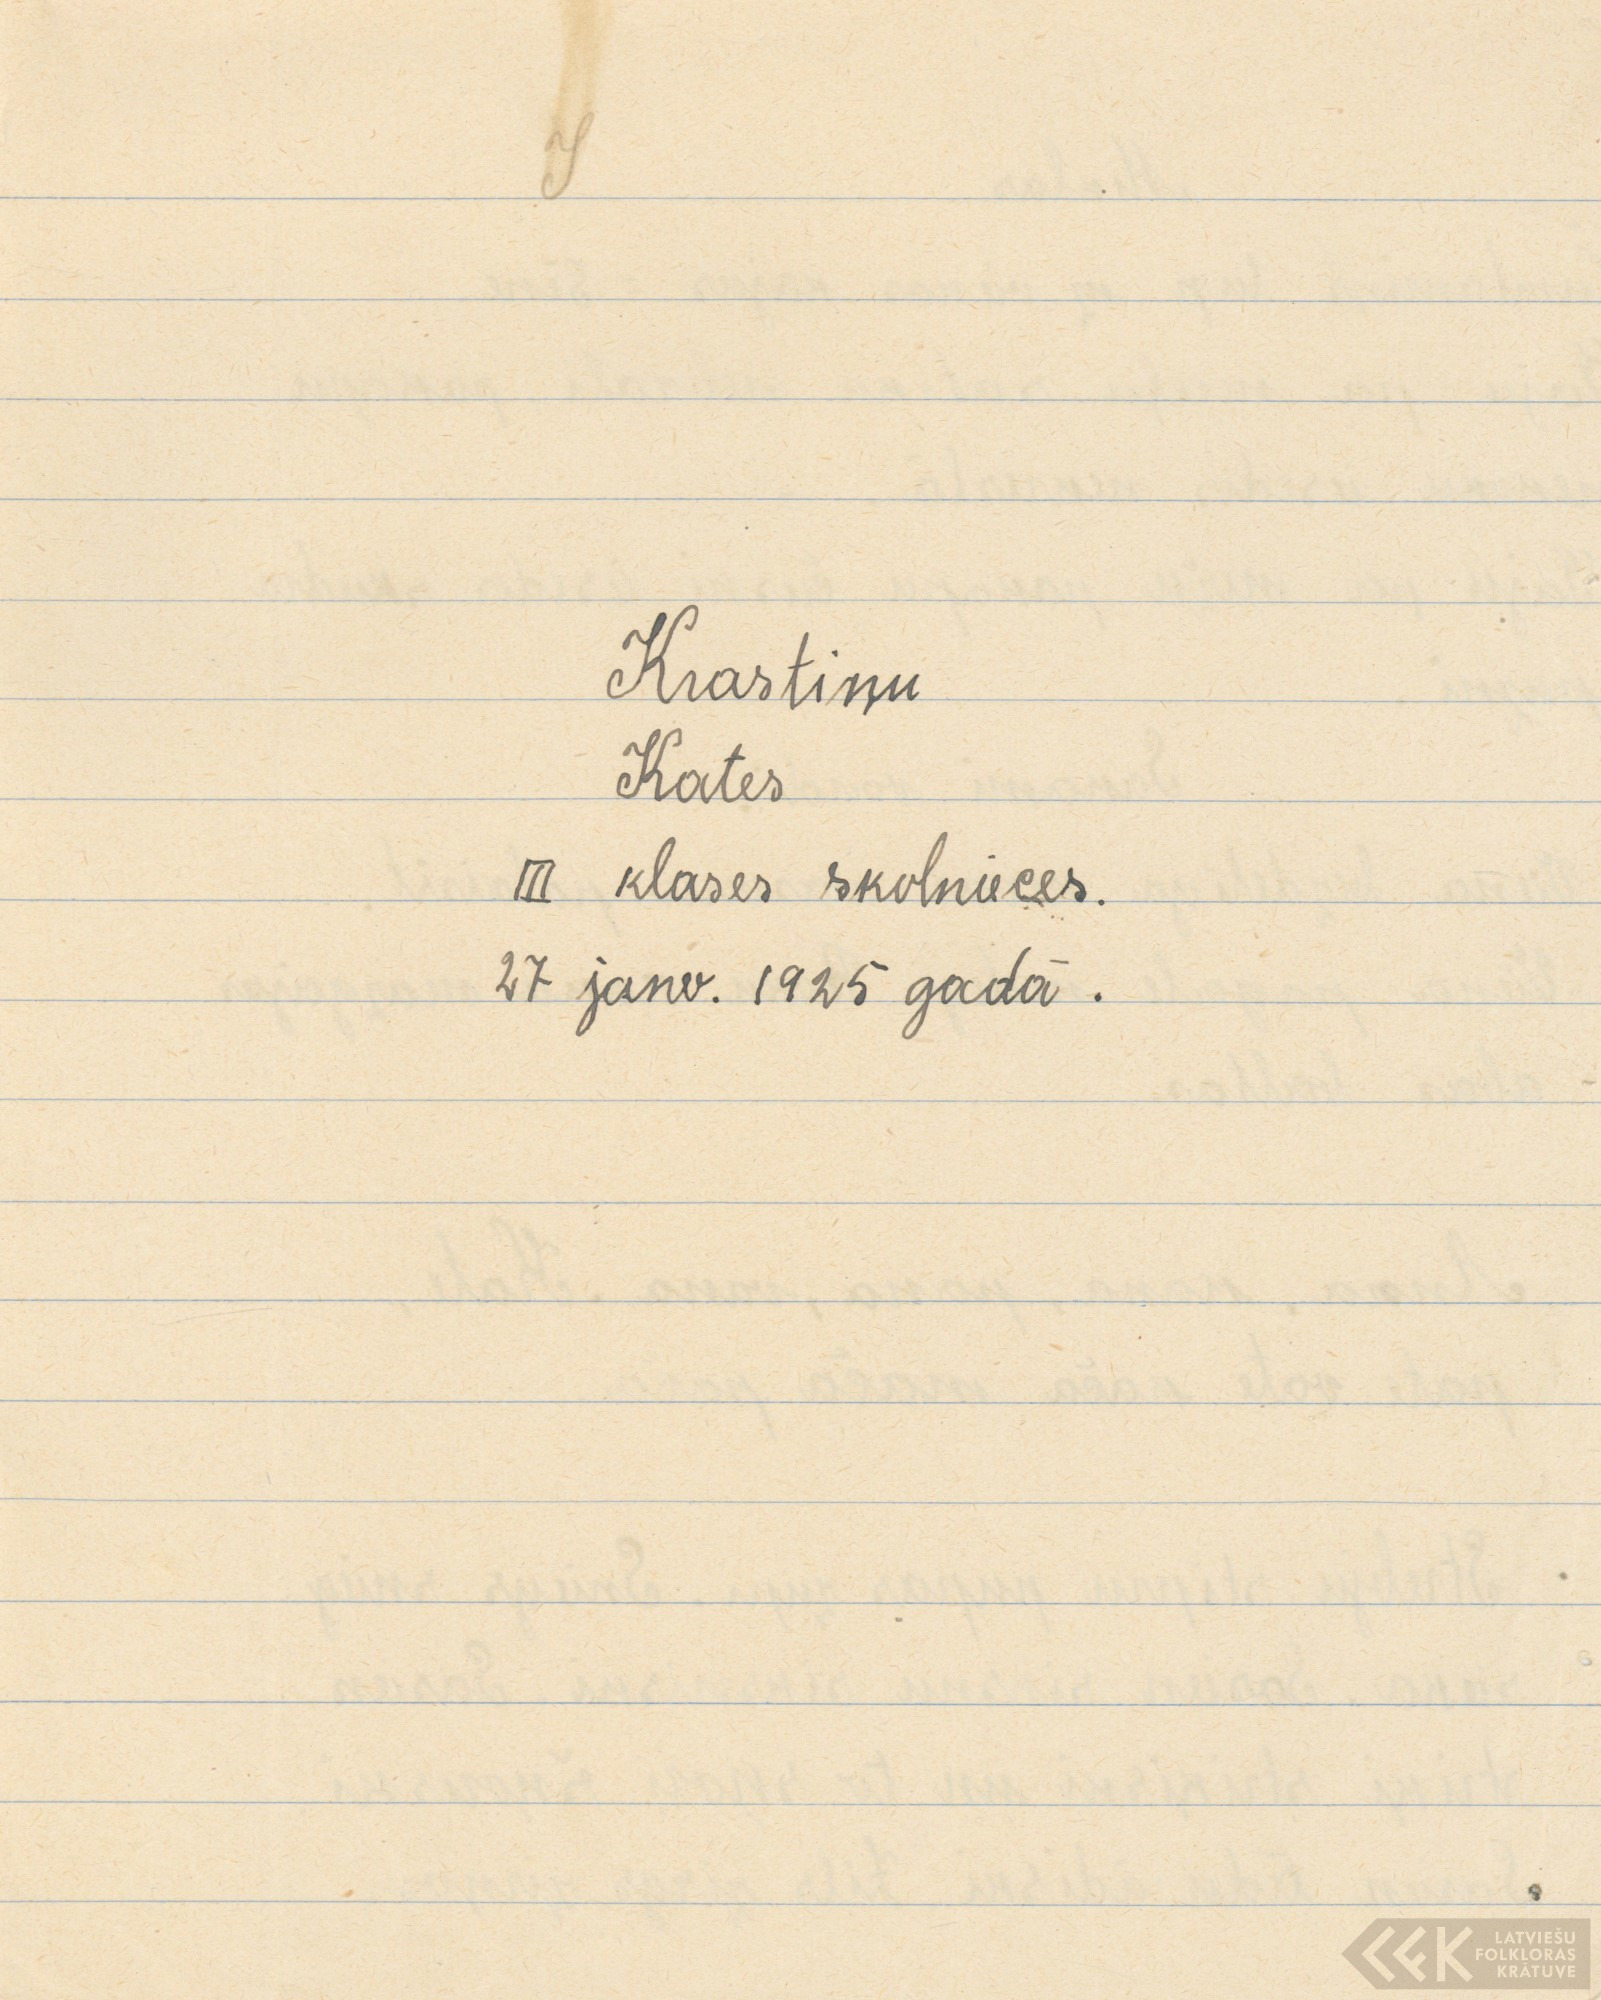 Krastiņu
Kates
III klases skolnieces.
27 janv. 1925 gadā.
LATVIEŠU
FOLKLORAS
KRĀTUVE